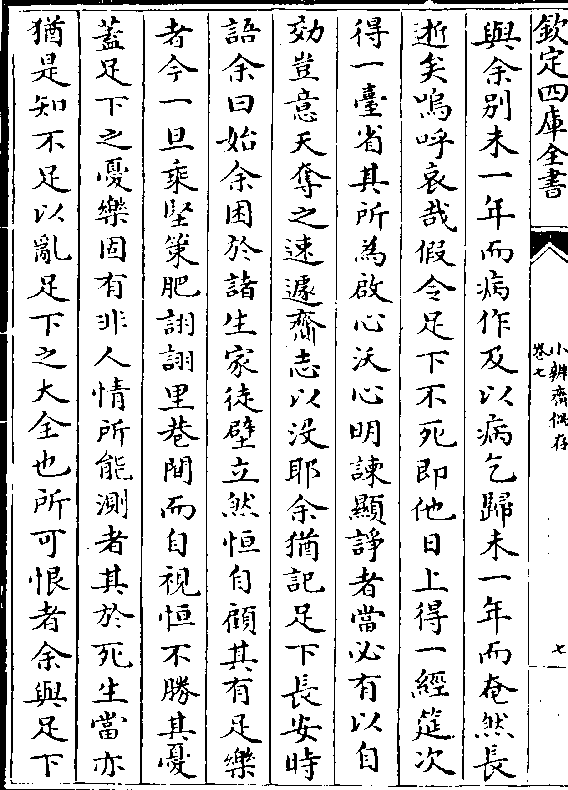 欽定四庫全書
小辨齋偶存
卷七
七
與余别未一年而病作及以病乞歸未一年而奄然長
逝矣嗚呼哀哉假令足下不死即他日上得一經筵次
得一臺省其所為啟心沃心明諫顯諍者當必有以自
効豈意天奪之速遽齎志以没耶余猶記足下長安時
語余曰始余困於諸生家徒壁立然恒自顧其有足樂
者今一旦乘堅策肥詡詡里巷間而自視恒不勝其憂
蓋足下之憂樂固有非人情所能測者其於死生當亦
猶是知不足以亂足下之大全也所可恨者余與足下